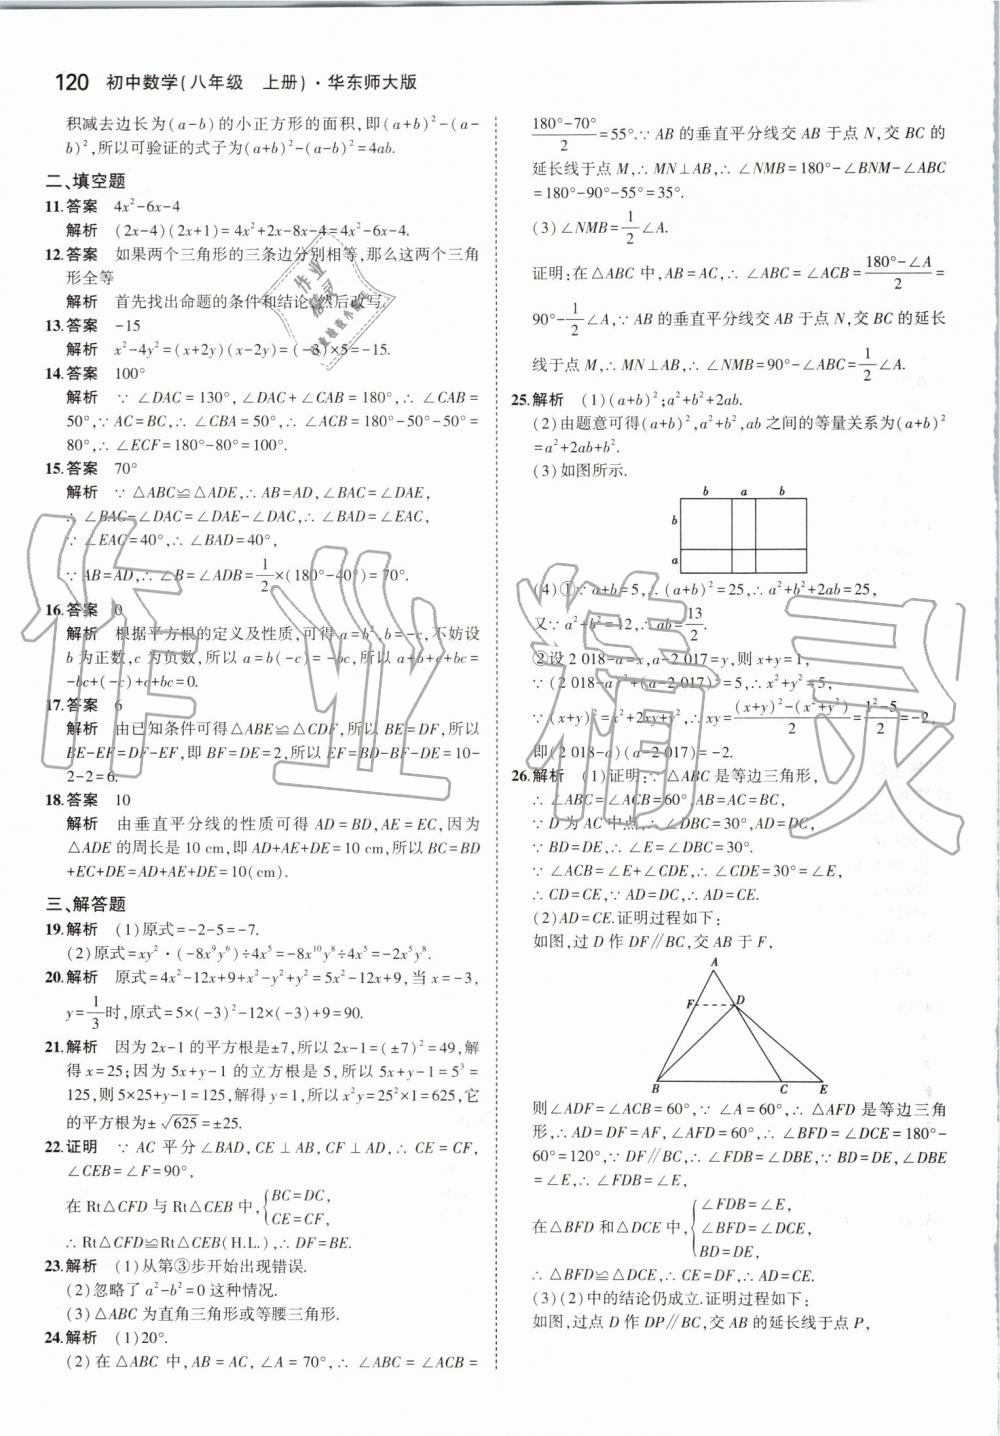 120 初中数学(八年级 上册)·华东师大版
积减去边长为(a-b)的小正方形的面积,即(a+b)²-(a-
b)²,所以可验证的式子为(a+b)²-(a-b)²=4ab.
二、填空题
11.答案 4x²-6x-4
解析 (2x-4)(2x+1)=4x²+2x-8x-4=4x²-6x-4.
12.答案 如果两个三角形的三条边分别相等,那么这两个三角
形全等
解析 首先找出命题的条件和结论,然后改写.
13.答案 -15
解析 x²-4y²=(x+2y)(x-2y)=(-3)×5=-15.
14.答案 100°
解析 ∵∠DAC=130°,∠DAC+∠CAB=180°,∴∠CAB=
50°,∵AC=BC,∴∠CBA=50°,∴∠ACB=180°-50°-50°=
80°,∴∠ECF=180°-80°=100°.
15.答案 70°
解析 ∵△ABC≌△ADE,∴AB=AD,∠BAC=∠DAE,
∴∠BAC-∠DAC=∠DAE-∠DAC,∴∠BAD=∠EAC,
∵∠EAC=40°,∴∠BAD=40°,
∵AB=AD,∴∠B=∠ADB=1/2×(180°-40°)=70°.
16.答案 0
解析 根据平方根的定义及性质,可得a=b²,b=-c,不妨设
b为正数,c为负数,所以a=b(-c)=-bc,所以a+b+c+bc=
-bc+(-c)+c+bc=0.
17.答案 6
解析 由已知条件可得△ABE≌△CDF,所以BE=DF,所以
BE-EF=DF-EF,即BF=DE=2,所以EF=BD-BF-DE=10-
2-2=6.
18.答案 10
解析 由垂直平分线的性质可得AD=BD,AE=EC,因为
△ADE的周长是10 cm,即AD+AE+DE=10 cm,所以BC=BD
+EC+DE=AD+AE+DE=10(cm).
三、解答题
19.解析 (1)原式=-2-5=-7.
(2)原式=xy²·(-8x⁹y⁶)÷4x⁵=-8x¹⁰y⁸÷4x⁵=-2x⁵y⁸.
20.解析 原式=4x²-12x+9+x²-y²+y²=5x²-12x+9,当x=-3,
y=1/3时,原式=5×(-3)²-12×(-3)+9=90.
21.解析 因为2x-1的平方根是±7,所以2x-1=(±7)²=49,解
得x=25;因为5x+y-1的立方根是5,所以5x+y-1=5³=
125,则5×25+y-1=125,解得y=1,所以x²y=25²×1=625,它
的平方根为±√625=±25.
22.证明 ∵AC平分∠BAD,CE⊥AB,CF⊥AD,∴CE=CF,
∠CEB=∠F=90°,
在Rt△CFD与Rt△CEB中,{BC=DC,
CE=CF,
∴Rt△CFD≌Rt△CEB(H.L.),∴DF=BE.
23.解析 (1)从第③步开始出现错误.
(2)忽略了a²-b²=0这种情况.
(3)△ABC为直角三角形或等腰三角形.
24.解析 (1)20°.
(2)在△ABC中,AB=AC,∠A=70°,∴∠ABC=∠ACB=
(180°-70°)/2=55°.∵AB的垂直平分线交AB于点N,交BC的
延长线于点M,∴MN⊥AB,∴∠NMB=180°-∠BNM-∠ABC
=180°-90°-55°=35°.
(3)∠NMB=1/2∠A.
证明:在△ABC中,AB=AC,∴∠ABC=∠ACB=(180°-∠A)/2=
90°-1/2∠A,∵AB的垂直平分线交AB于点N,交BC的延长
线于点M,∴MN⊥AB,∴∠NMB=90°-∠ABC=1/2∠A.
25.解析 (1)(a+b)²;a²+b²+2ab.
(2)由题意可得(a+b)²,a²+b²,ab之间的等量关系为(a+b)²
=a²+2ab+b².
(3)如图所示.
b a b
b
a
(4)①∵a+b=5,∴(a+b)²=25,∴a²+b²+2ab=25,
又∵a²+b²=12,∴ab=13/2.
②设2 018-a=x,a-2 017=y,则x+y=1,
∵(2 018-a)²+(a-2 017)²=5,∴x²+y²=5,
∵(x+y)²=x²+2xy+y²,∴xy=((x+y)²-(x²+y²))/2=(1²-5)/2=-2,
即(2 018-a)(a-2 017)=-2.
26.解析 (1)证明:∵△ABC是等边三角形,
∴∠ABC=∠ACB=60°,AB=AC=BC,
∵D为AC中点,∴∠DBC=30°,AD=DC,
∵BD=DE,∴∠E=∠DBC=30°.
∵∠ACB=∠E+∠CDE,∴∠CDE=30°=∠E,
∴CD=CE,∵AD=DC,∴AD=CE.
(2)AD=CE.证明过程如下:
如图,过D作DF∥BC,交AB于F,
A
F D
B C E
则∠ADF=∠ACB=60°,∵∠A=60°,∴△AFD是等边三角
形,∴AD=DF=AF,∠AFD=60°,∴∠BFD=∠DCE=180°-
60°=120°,∵DF∥BC,∴∠FDB=∠DBE,∵BD=DE,∠DBE
=∠E,∴∠FDB=∠E,
在△BFD和△DCE中,{∠FDB=∠E,
∠BFD=∠DCE,
BD=DE,
∴△BFD≌△DCE,∴CE=DF,∴AD=CE.
(3)(2)中的结论仍成立.证明过程如下:
如图,过点D作DP∥BC,交AB的延长线于点P,
作业精灵